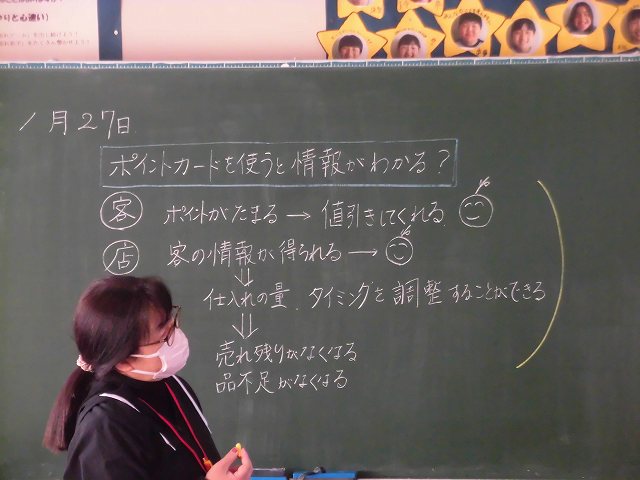 1月27日
ポイントカードを使うと情報がわかる?
客 ポイントがたまる → 値引きしてくれる
店 客の情報が得られる →
仕入れの量、タイミングを調整することができる
売れ残りがなくなる
品不足がなくなる